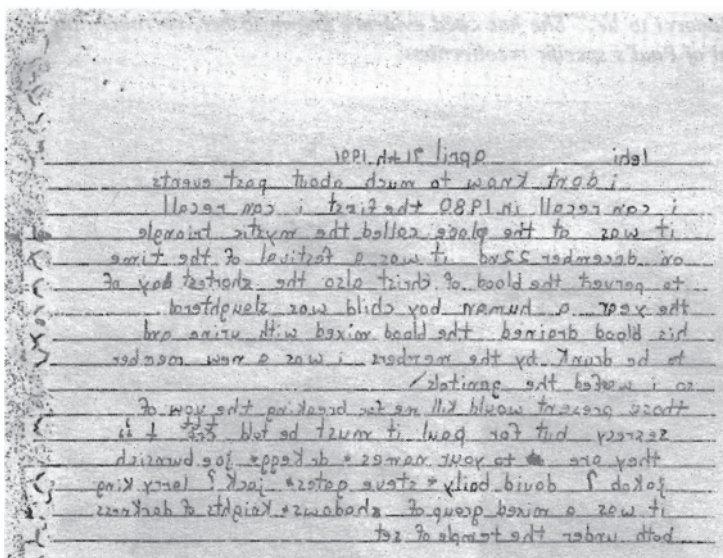 lehi april 1991
i dont know to much about past events
i can recall in 1980 the first i can recall
it was at the place called the mystic triangle
on decemder 22nd it was a festival of the time
to pervert the blood of christ also the shortest day of
the year a human boy child was slaughterd
his blood drained the blood mixed with urine and
to be drunk by the members i was a new member
so i wafed the genitals/
those present would kill me for breaking the vow of
sesresy but for paul it must be told
they are to your names * dr kegg* joe burnsich
jakob ? david baily * steve gates* jack ? larry king
it was a mixed group of shadows * knights of darkness
both under the temple of set